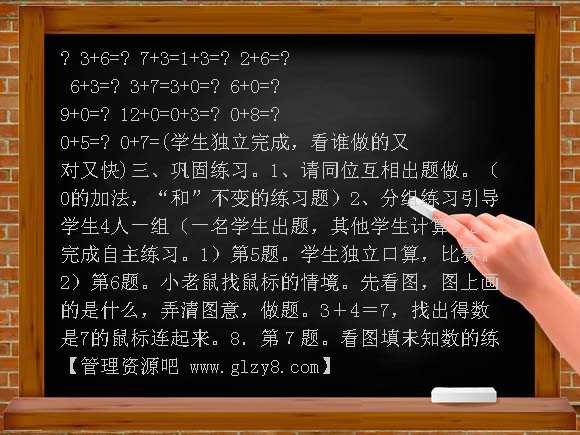 ? 3+6=? 7+3=1+3=? 2+6=?
6+3=? 3+7=3+0=? 6+0=?
9+0=? 12+0=0+3=? 0+8=?
0+5=? 0+7=(学生独立完成，看谁做的又
对又快)三、巩固练习。1、请同位互相出题做。（
0的加法，“和”不变的练习题）2、分组练习引导
学生4人一组（一名学生出题，其他学生计算
完成自主练习。1）第5题。学生独立口算，比赛。
2）第6题。小老鼠找鼠标的情境。先看图，图上画
的是什么，弄清图意，做题。3＋4＝7，找出得数
是7的鼠标连起来。8．第７题。看图填未知数的练
【管理资源吧 www.glzy8.com】